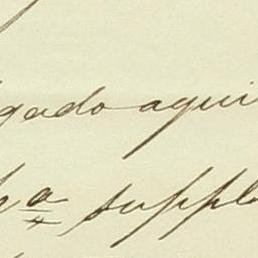 gado aqui
a suppl